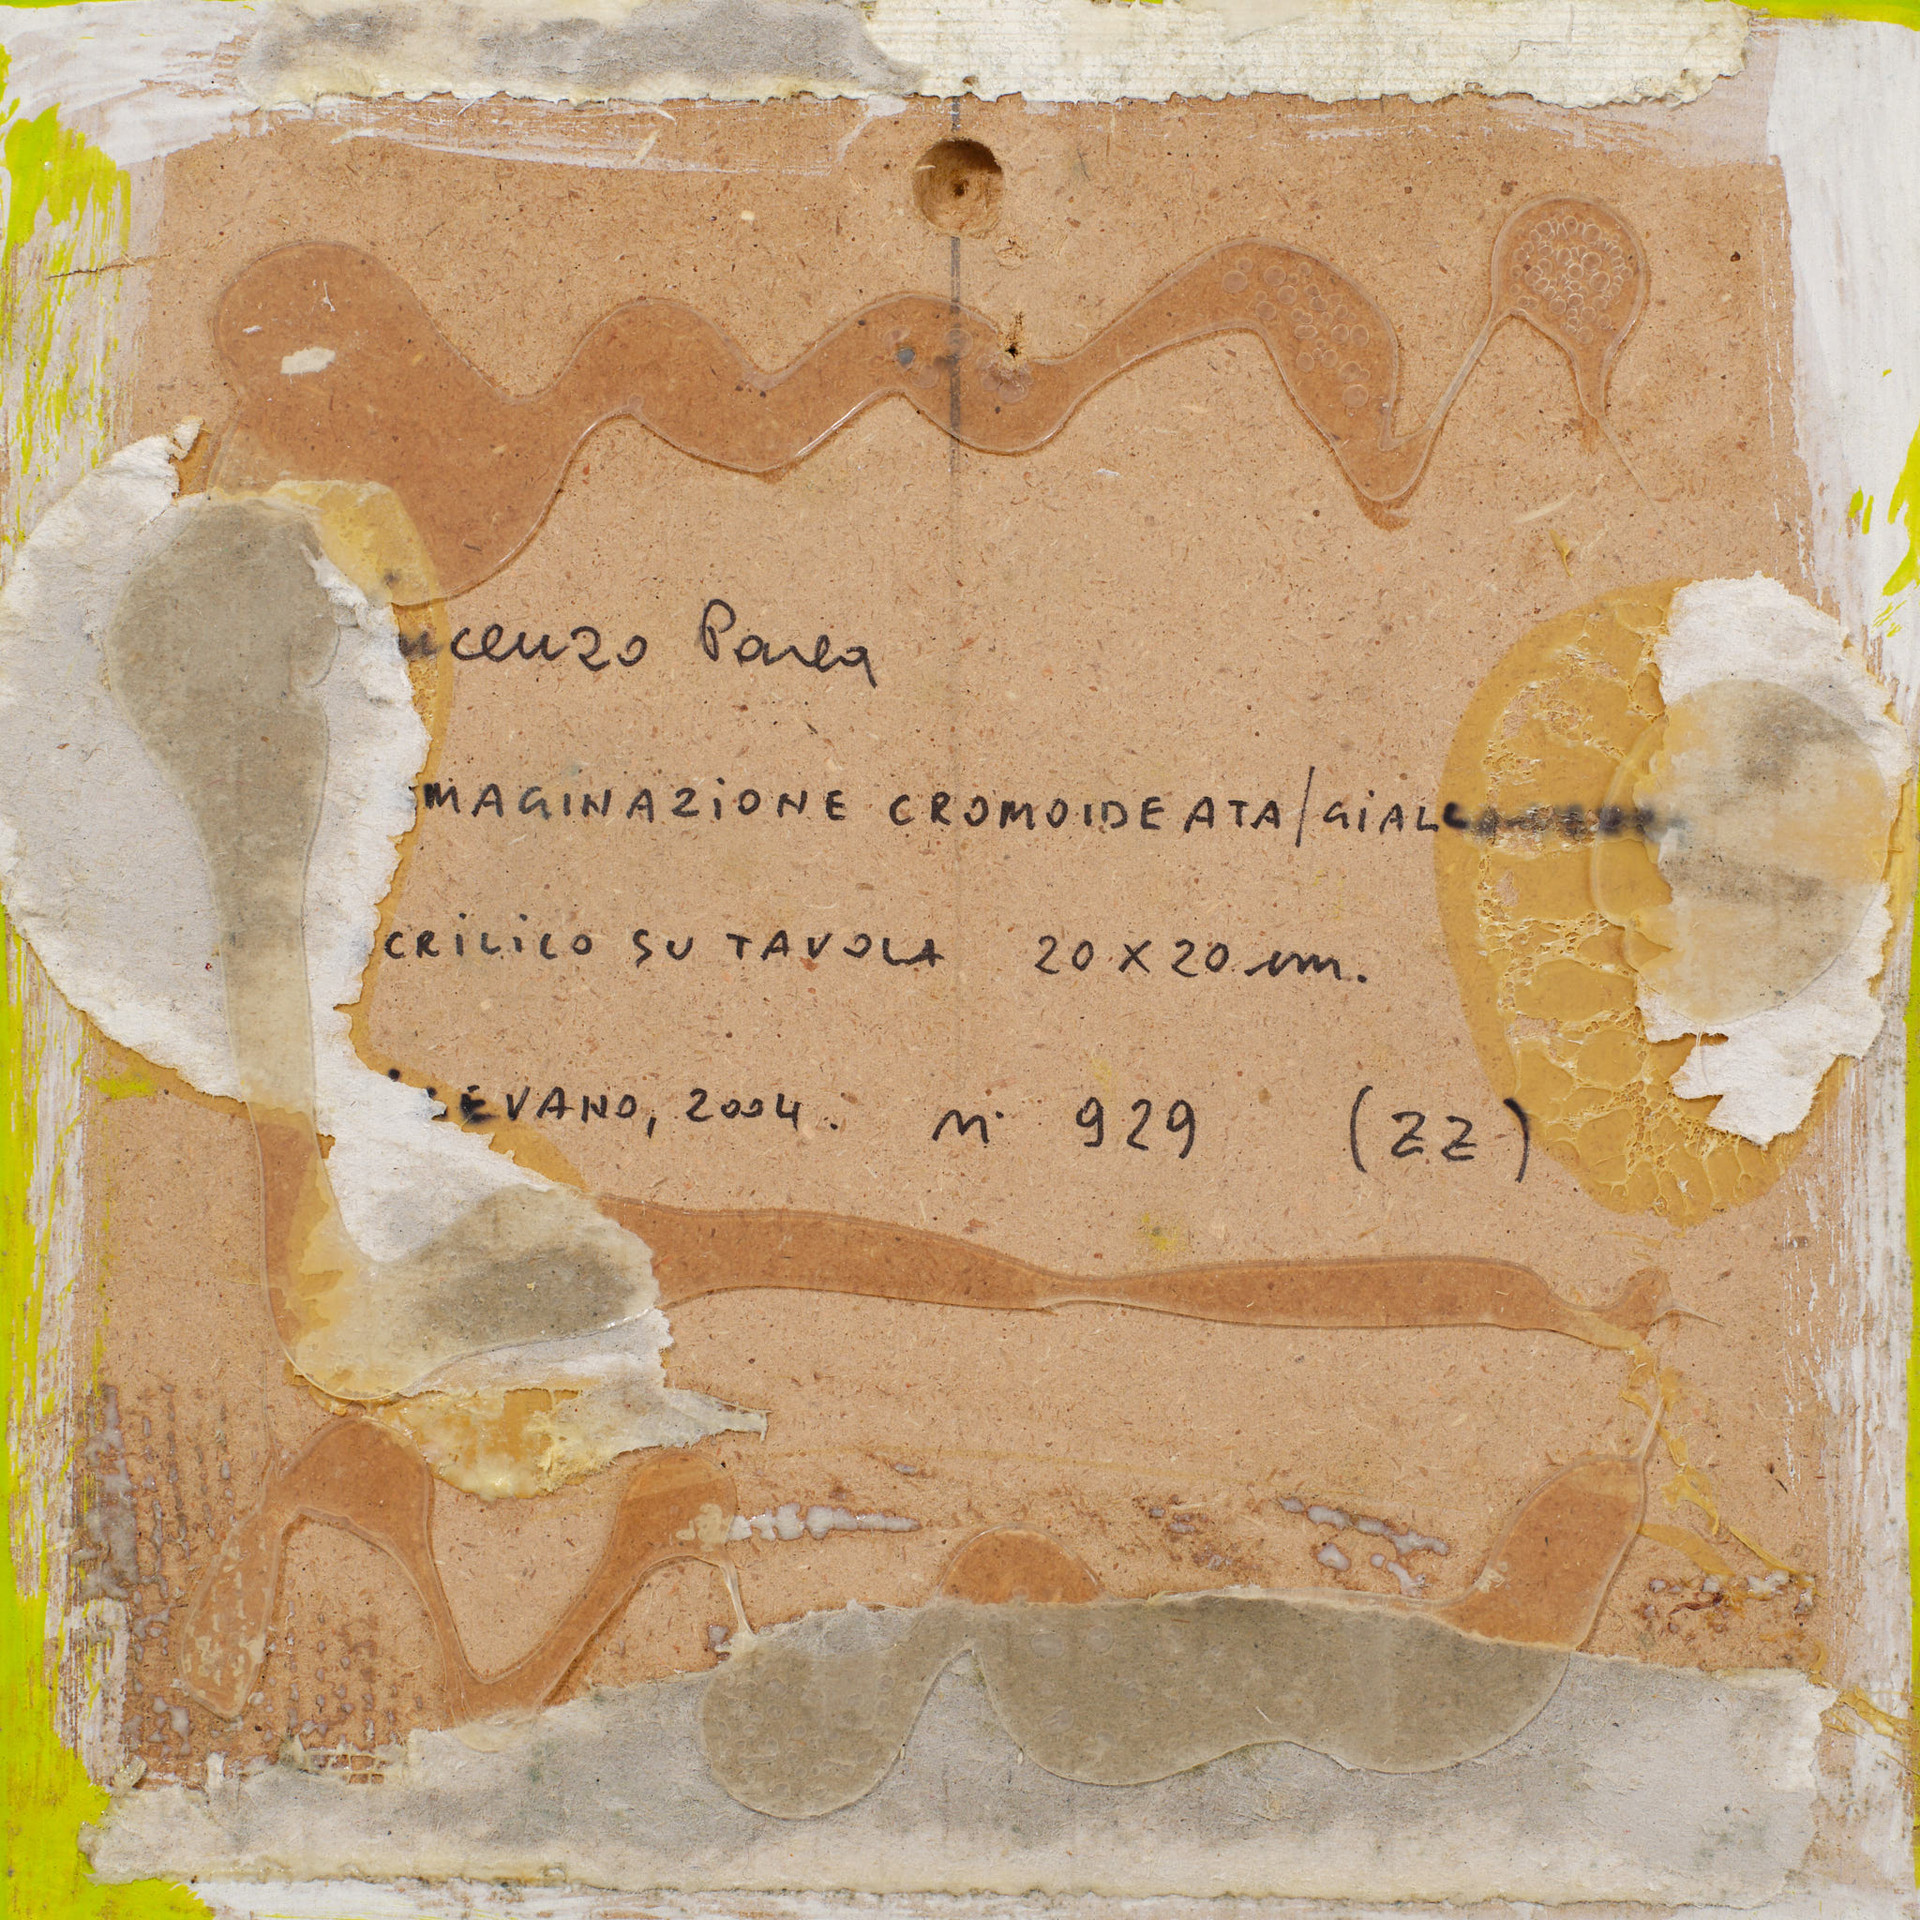 ncenzo Parea
MAGINAZIONE CROMOIDEATA/GIALLO
CRILICO SU TAVOLA 20 X 20 cm.
EVANO, 2004. N° 929 (ZZ)